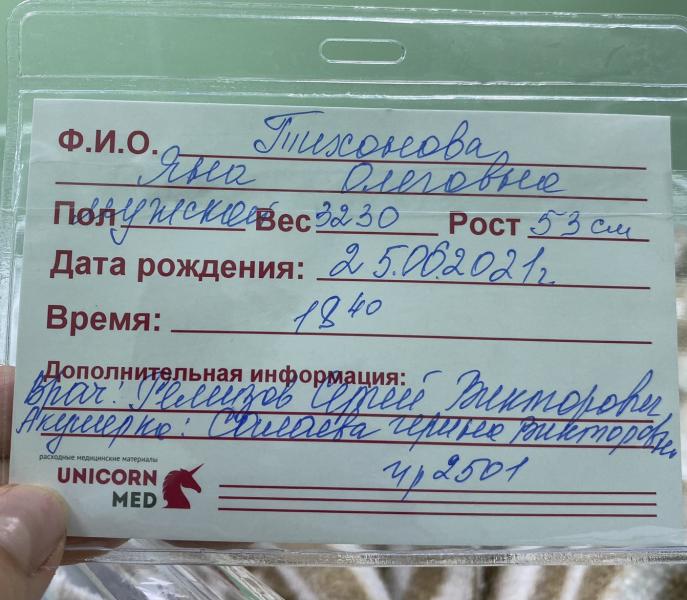 Ф.И.О. Тихонова
Яна Олеговна
Пол мужской Вес 3230 Рост 53 см
Дата рождения: 25.06.2021г.
Время: 18 40
Дополнительная информация:
Врач: Ремизов Сергей Викторович
Акушерка: Салаева Ирина Викторовна
расходные медицинские материалы
UNICORN
MED
2501